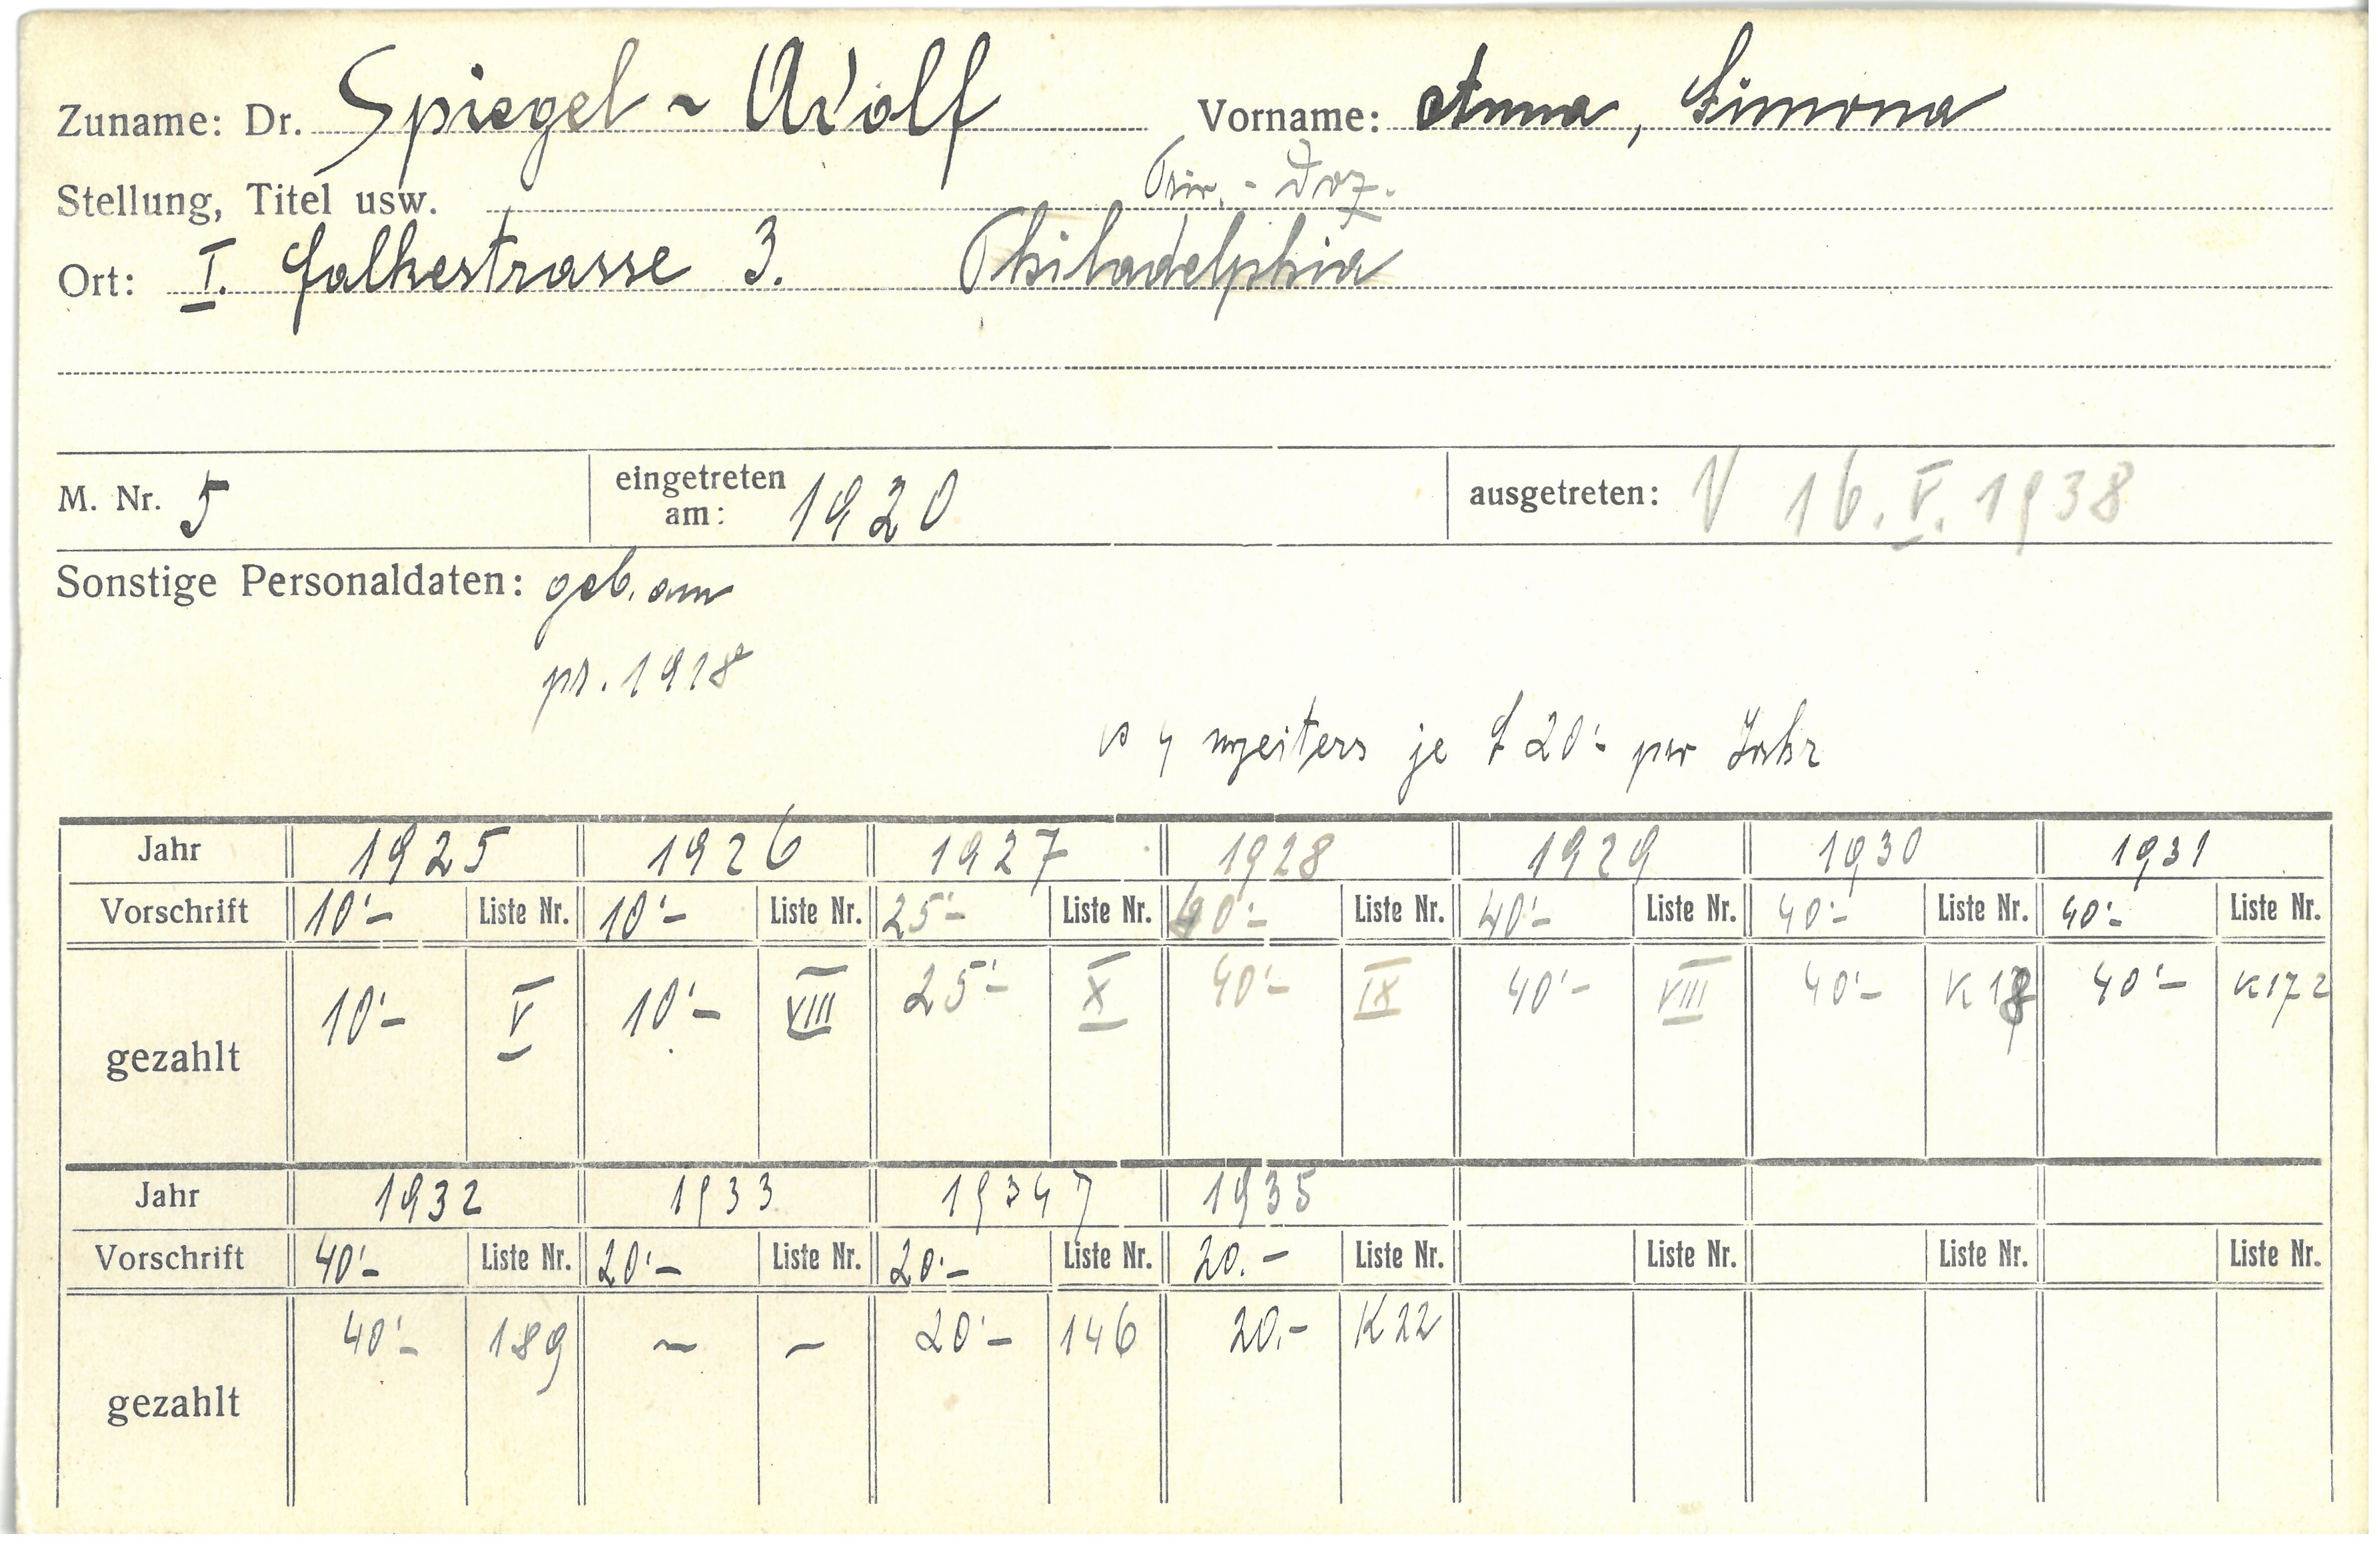 Zuname: Dr. Spiegel - Adolf Vorname: Anna, Simona
Stellung, Titel usw. Priv. - Doz.
Ort: I. Falkestrasse 3. Philadelphia
M. Nr. 5 eingetreten am: 1920 ausgetreten: V 16. V. 1938
Sonstige Personaldaten: geb. am
pr. 1918
weiters je S 20'- per Jahr
Jahr 1925 1926 1927 1928 1929 1930 1931
Vorschrift 10'- Liste Nr. 10'- Liste Nr. 25'- Liste Nr. 40'- Liste Nr. 40'- Liste Nr. 40'- Liste Nr. 40'- Liste Nr.
gezahlt 10'- V 10'- VIII 25'- X 40'- IX 40'- VIII 40'- 40'- K 172
Jahr 1932 1933 1934 1935
Vorschrift 40'- Liste Nr. 20'- Liste Nr. 20'- Liste Nr. 20.- Liste Nr. Liste Nr. Liste Nr. Liste Nr.
gezahlt 40'- 189 ~ - 20'- 146 20.- K 22